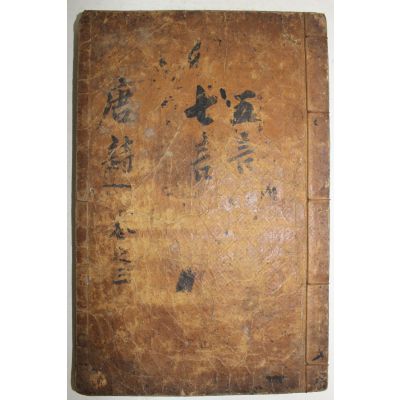 五言
七言
唐詩一
之三